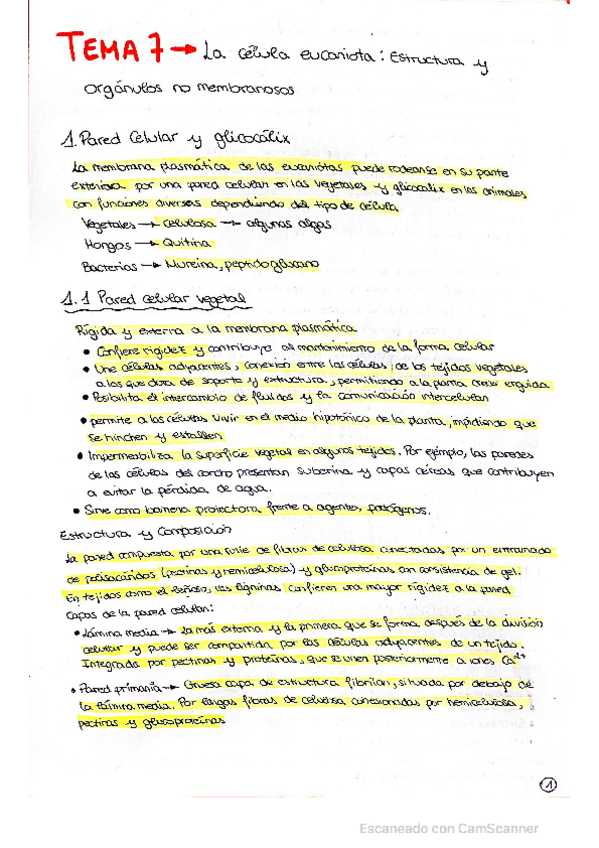 TEMA 7 → La célula eucariota: Estructura y
orgánulos no membranosos
1. Pared Celular y glicocálix
La membrana plasmática de las eucariotas puede rodearse en su parte
exterior por una pared celular en las vegetales y glicocalix en las animales
con funciones diversas dependiendo del tipo de célula.
Vegetales → celulosa → algunas algas
Hongos → Quitina
Bacterias → Mureina, peptidoglucano
1.1 Pared celular vegetal
Rígida y externa a la membrana plasmática
• Confiere rigidez y contribuye al mantenimiento de la forma celular
• Une células adyacentes, conexión entre las células, de los tejidos vegetales
a los que dota de soporte y estructura, permitiendo a la planta crecer erguida
• Posibilita el intercambio de fluidos y la comunicación intercelular
• permite a las células vivir en el medio hipotónico de la planta, impidiendo que
se hinchen y estallen
• Impermeabiliza la superficie vegetal en algunos tejidos. Por ejemplo, las paredes
de las células del corcho presentan suberina y capas céreas que contribuyen
a evitar la pérdida de agua.
• Sirve como barrera protectora frente a agentes patógenos.
Estructura y Composición
La pared compuesta por una serie de fibras de celulosa conectadas por un entramado
de polisacáridos (pectinas y hemicelulosa) y glucoproteínas con consistencia de gel.
En tejidos como el leñoso, las ligninas confieren una mayor rigidez a la pared
Capas de la pared celular:
• Lámina media → La más externa y la primera que se forma después de la división
celular y puede ser compartida por las células adyacentes de un tejido.
Integrada por pectinas y proteínas, que se unen posteriormente a iones Ca²⁺
• Pared primaria → Gruesa capa de estructura fibrilar, situada por debajo de
la lámina media. Por largas fibras de celulosa cohesionadas por hemicelulosa,
pectinas y glucoproteínas
1
Escaneado con CamScanner